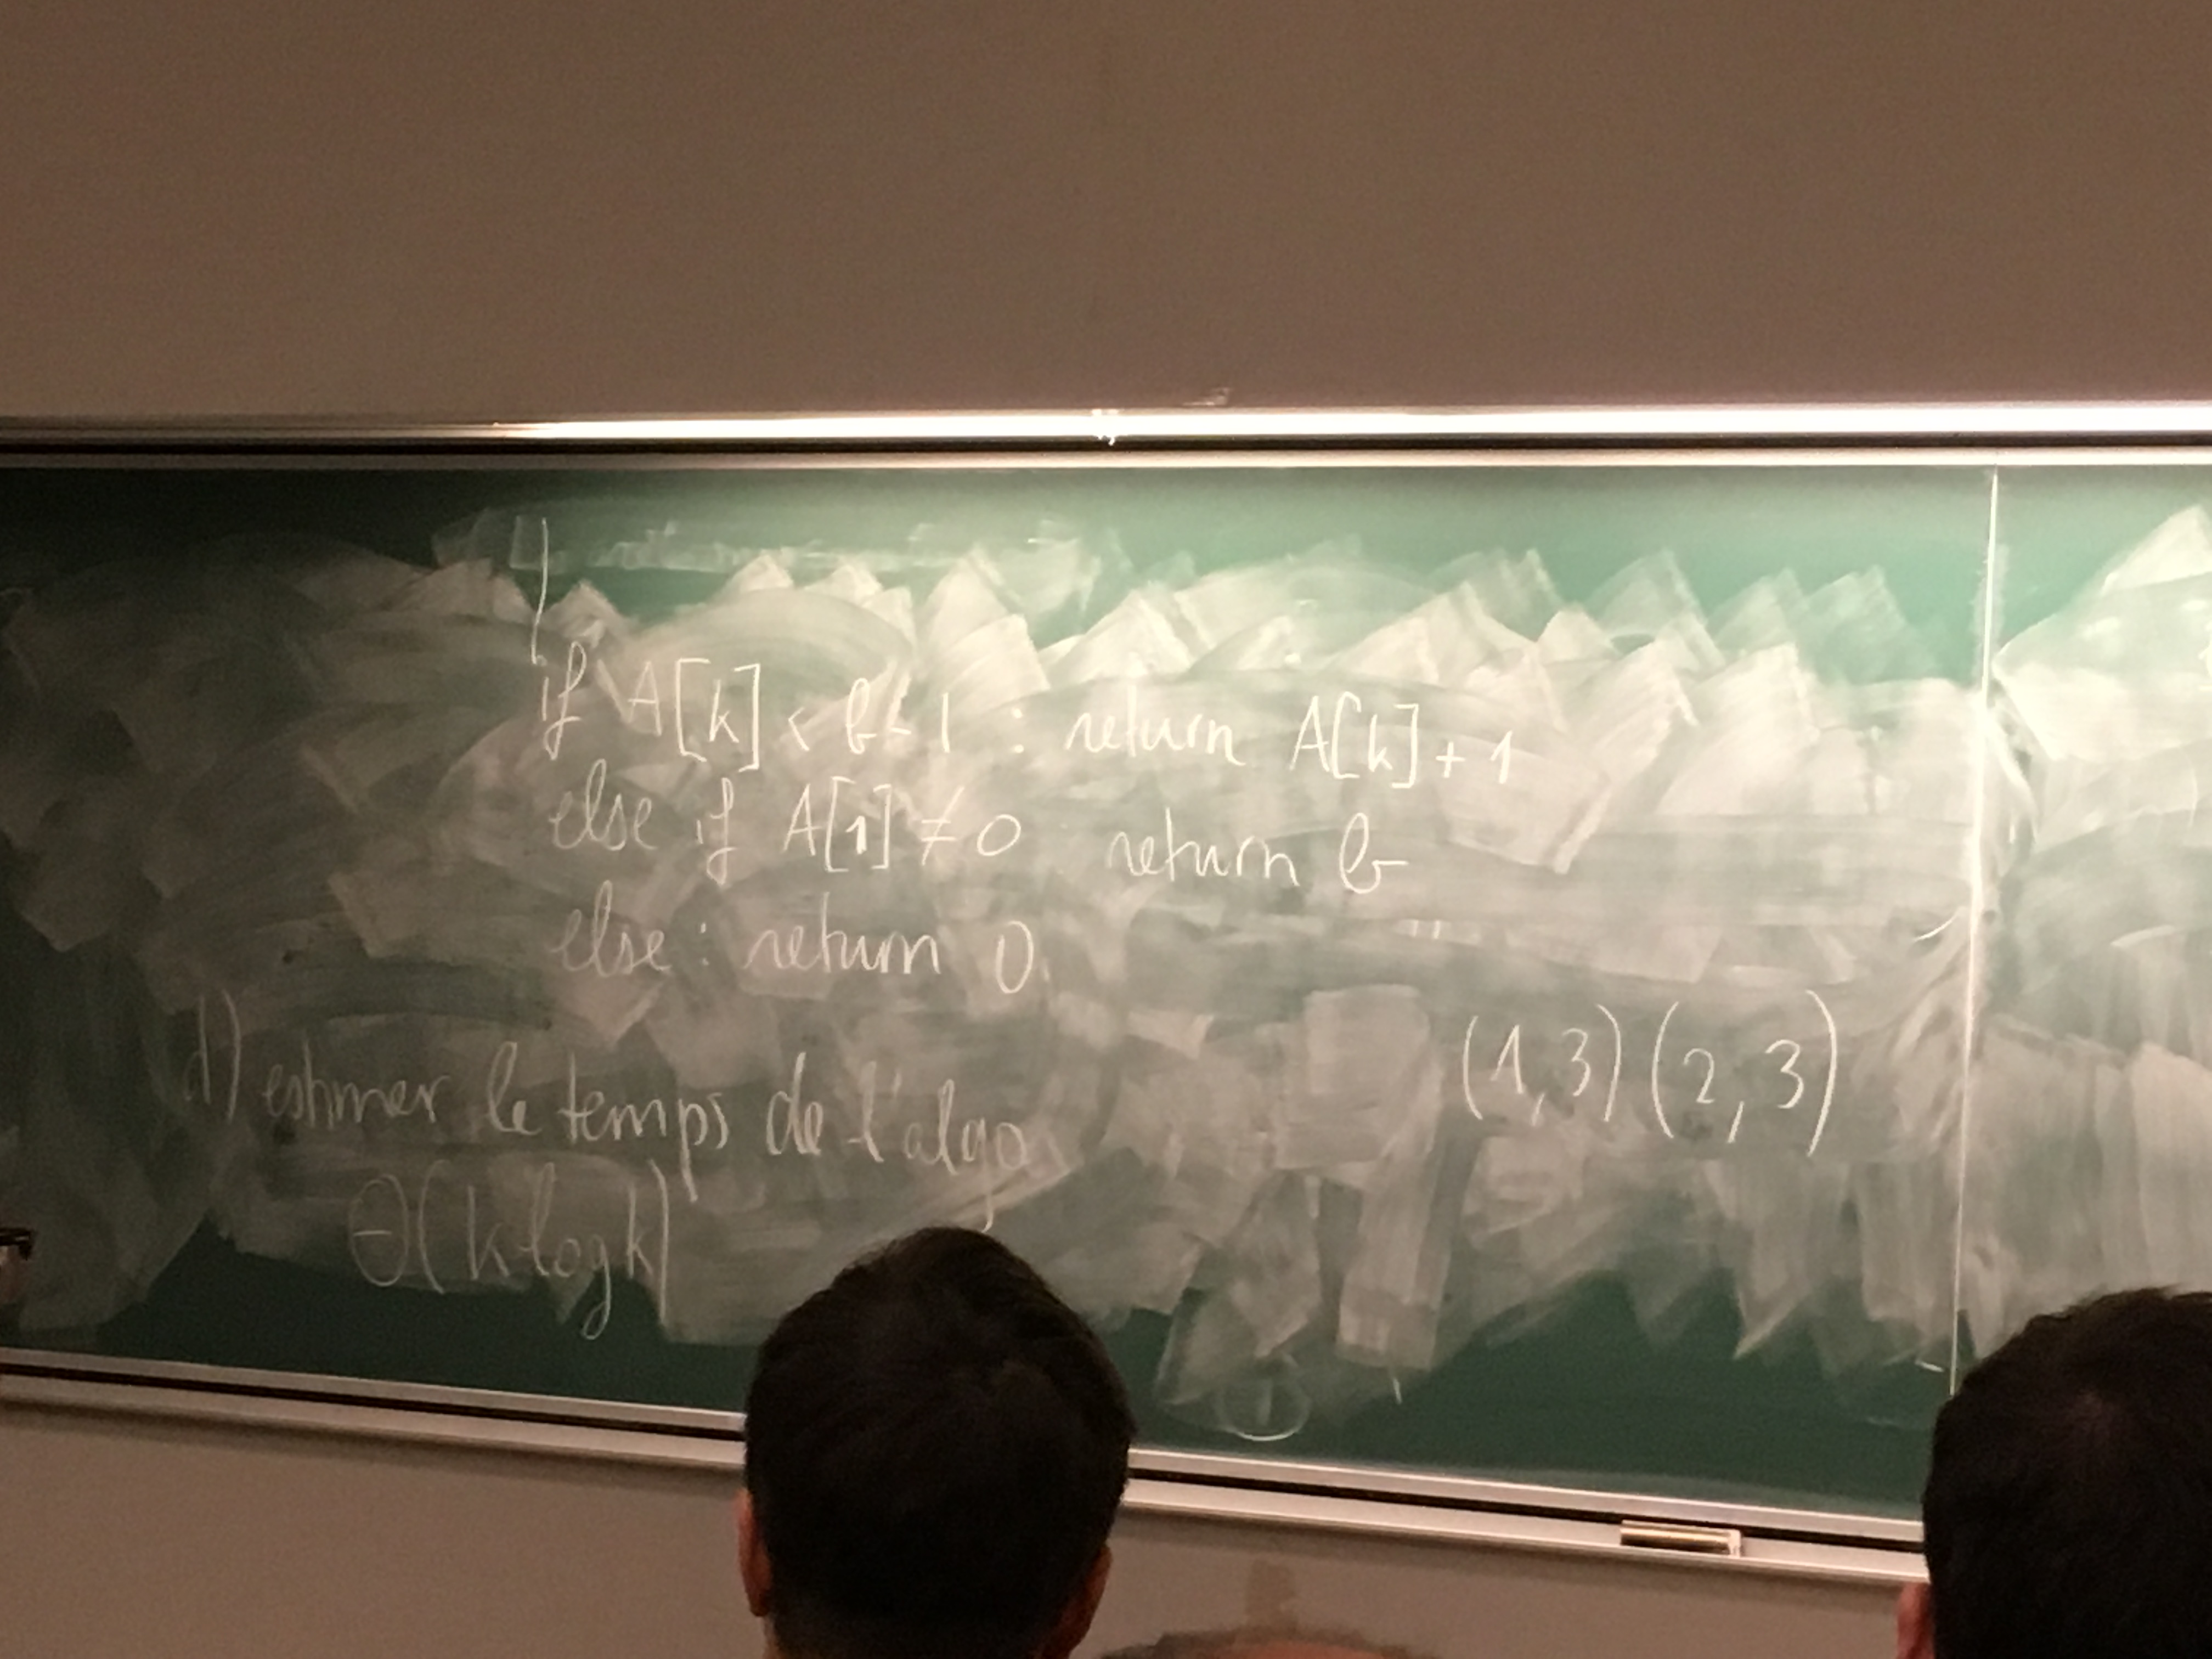 if A[k] < b-1 : return A[k]+1
else if A[1] ≠ 0 return b
else : return 0
(1,3) (2,3)
d) estimer le temps de l'algo
Θ(k log k)